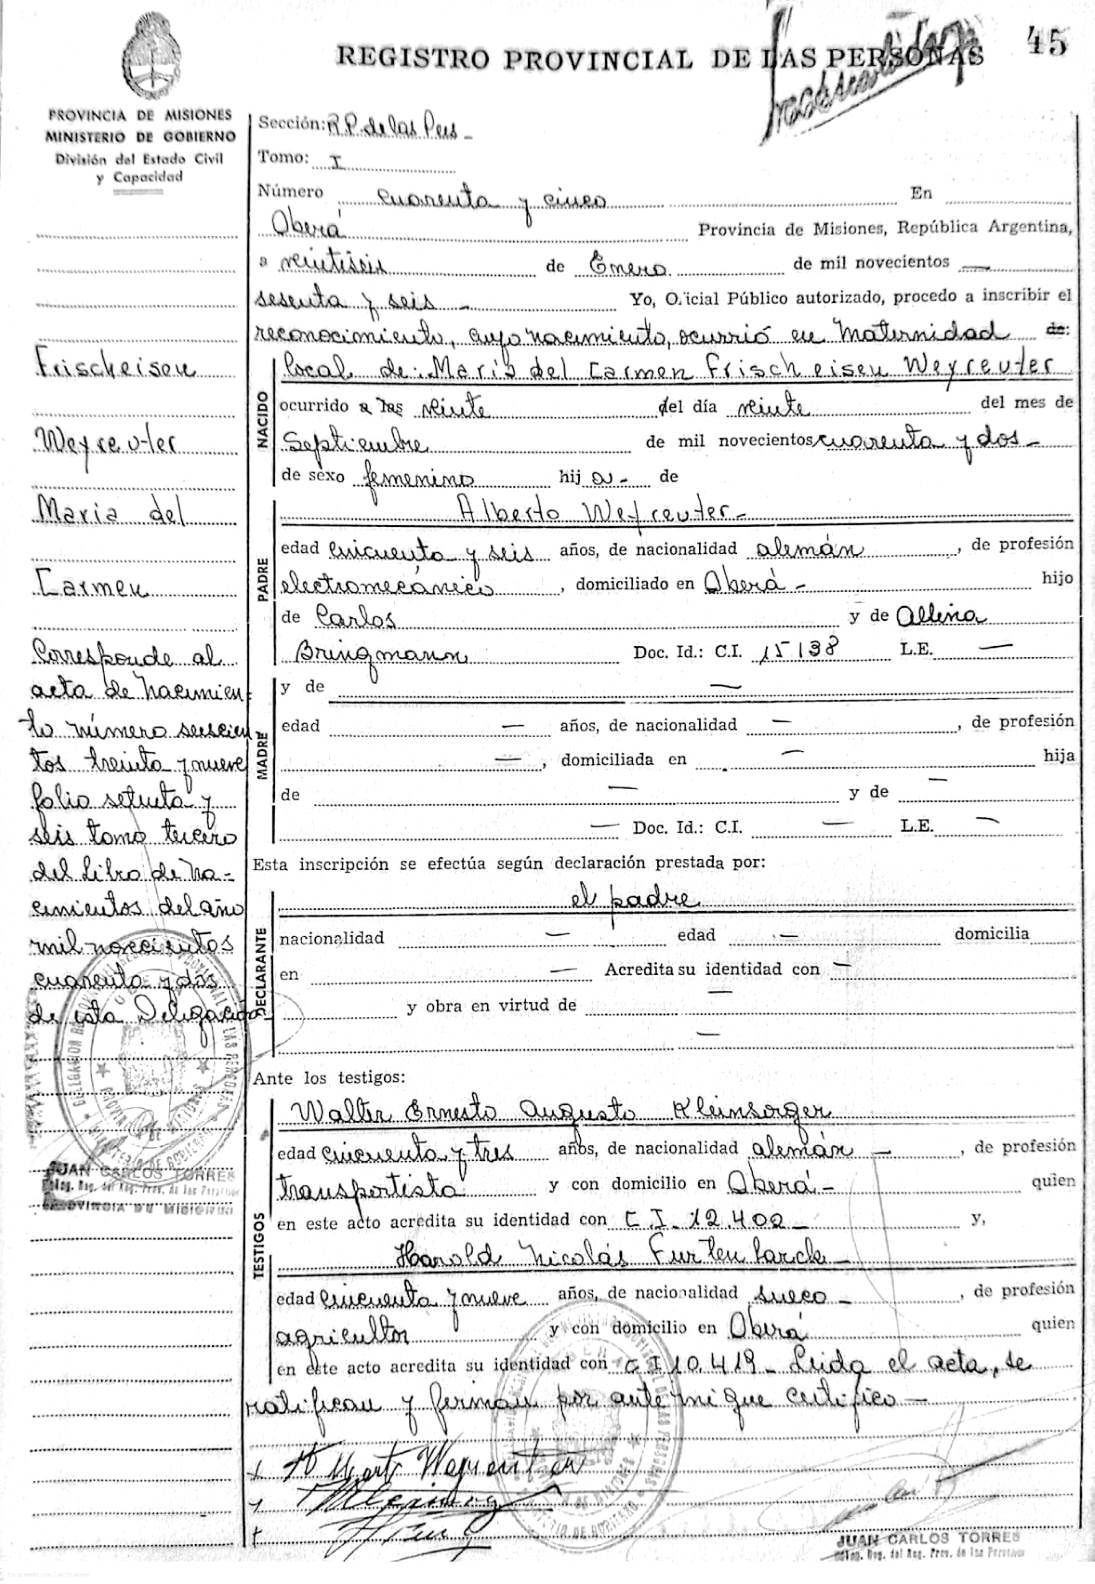 45
REGISTRO PROVINCIAL DE LAS PERSONAS
PROVINCIA DE MISIONES
MINISTERIO DE GOBIERNO
División del Estado Civil
y Capacidad
Frischeisen
Weyreuter
Maria del
Carmen
Corresponde al
acta de nacimien
to número seiscien
tos treinta y nueve
folio setenta y
seis tomo tercero
del libro de na-
cimientos del año
mil novecientos
cuarenta y dos
de esta Delegación
JUAN CARLOS TORRES
PROVINCIA DE MISIONES
Sección: R.P. de las Pers -
Tomo: I
Número cuarenta y cinco En
Oberá Provincia de Misiones, República Argentina,
a veintiséis de Enero de mil novecientos —
sesenta y seis - Yo, Oficial Público autorizado, procedo a inscribir el
reconocimiento, cuyo nacimiento, ocurrió en Maternidad de:
NACIDO
local de: María del Carmen Frischeisen Weyreuter
ocurrido a las veinte del día veinte del mes de
Septiembre de mil novecientos cuarenta y dos -
de sexo femenino hij a - de
PADRE
Alberto Weyreuter -
edad cincuenta y seis años, de nacionalidad alemán, de profesión
electromecánico, domiciliado en Oberá - hijo
de Carlos y de Allina
Bringmann Doc. Id.: C.I. 15138 L.E. —
MADRE
y de —
edad — años, de nacionalidad —, de profesión
—, domiciliada en — hija
de — y de —
— Doc. Id.: C.I. — L.E. —
Esta inscripción se efectúa según declaración prestada por:
DECLARANTE
el padre
nacionalidad — edad — domicilia
en — Acredita su identidad con —
y obra en virtud de —
—
Ante los testigos:
TESTIGOS
Walter Ernesto Augusto Kleinsorger
edad cincuenta y tres años, de nacionalidad alemán —, de profesión
transportista y con domicilio en Oberá - quien
en este acto acredita su identidad con C.I. 12.402 - y,
Harold Nicolás Furtenbarck -
edad cincuenta y nueve años, de nacionalidad sueco -, de profesión
agricultor y con domicilio en Oberá quien
en este acto acredita su identidad con C.I 10.419 - Leida el acta, se
ratifican y firman por ante mi que certifico -
JUAN CARLOS TORRES